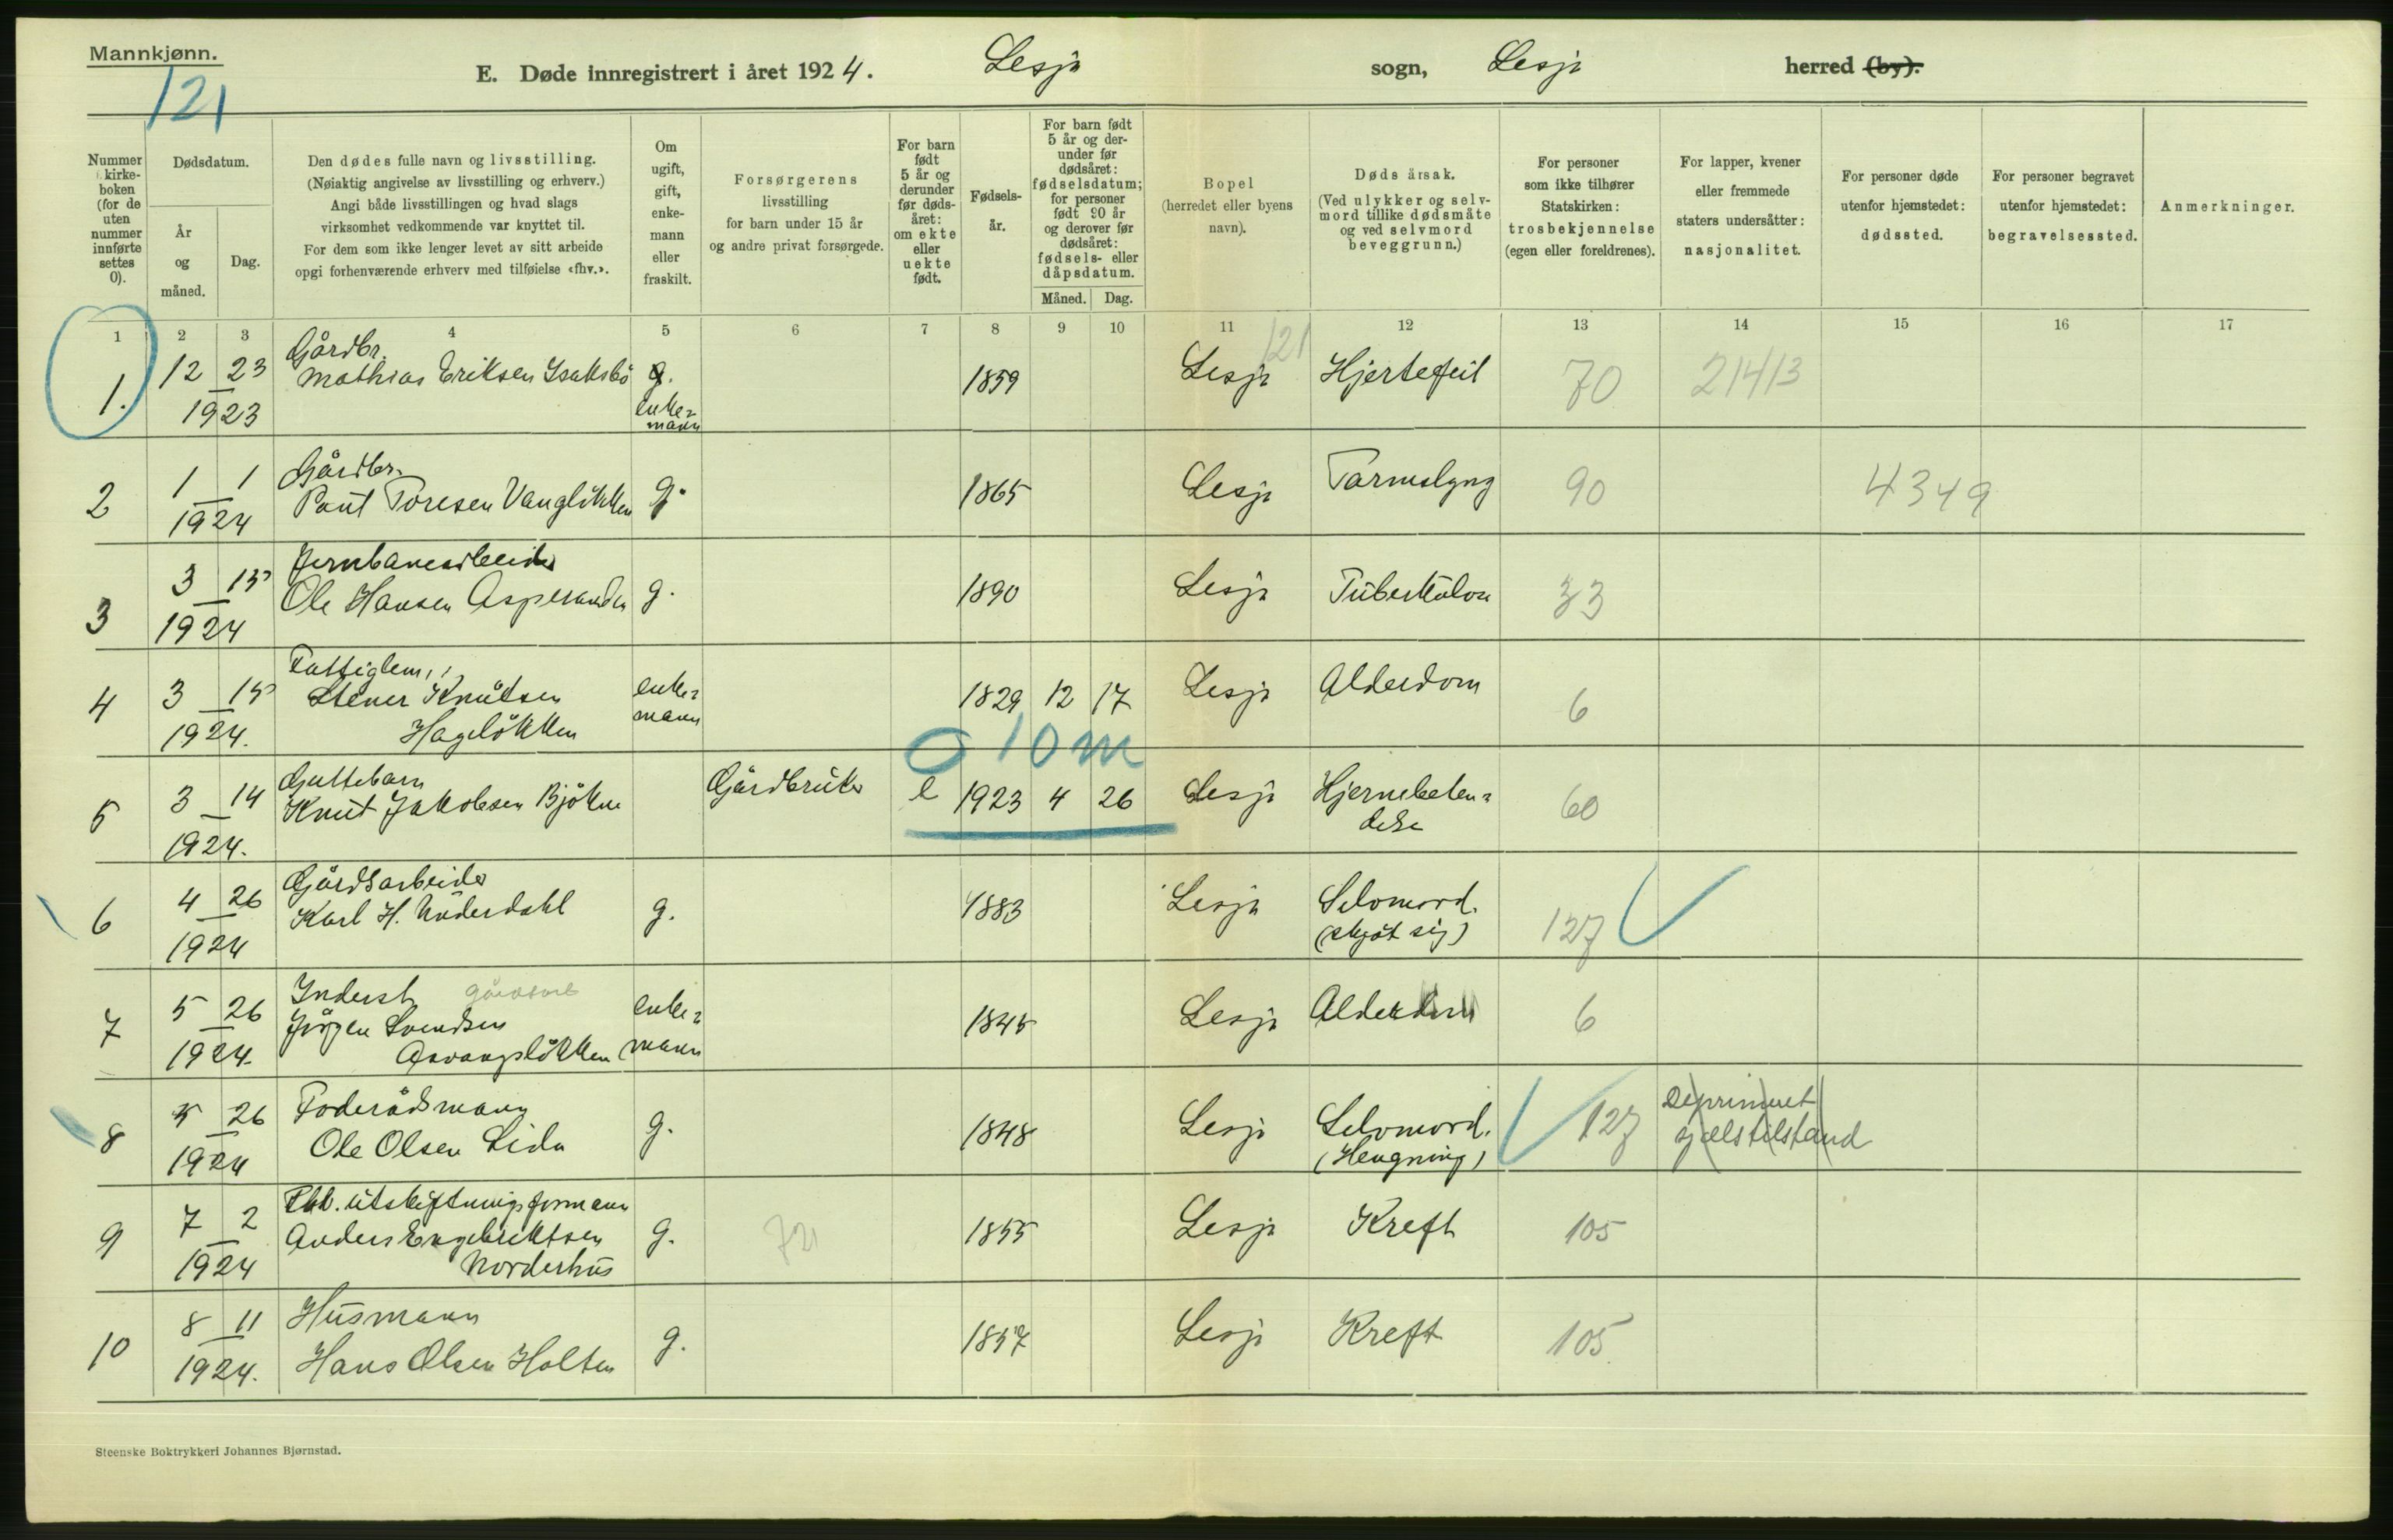 Mannkjønn.
121
E. Døde innregistrert i året 1924. Lesja sogn, Lesja herred (by).
Nummer
i kirke-
boken
(for de
uten
nummer
innførte
settes
0).
Dødsdatum.
År
og
måned.
Dag.
Den dødes fulle navn og livsstilling.
(Nøiaktig angivelse av livsstilling og erhverv.)
Angi både livsstillingen og hvad slags
virksomhet vedkommende var knyttet til.
For dem som ikke lenger levet av sitt arbeide
opgi forhenværende erhverv med tilføielse «fhv.».
Om
ugift,
gift,
enke-
mann
eller
fraskilt.
Forsørgerens
livsstilling
for barn under 15 år
og andre privat forsørgede.
For barn
født
5 år og
derunder
før døds-
året:
om ekte
eller
uekte
født.
Fødsels-
år.
For barn født
5 år og der-
under før
dødsåret:
fødselsdatum;
for personer
født 90 år
og derover før
dødsåret:
fødsels- eller
dåpsdatum.
Måned. Dag.
Bopel
(herredet eller byens
navn).
Døds årsak.
(Ved ulykker og selv-
mord tillike dødsmåte
og ved selvmord
beveggrunn.)
For personer
som ikke tilhører
Statskirken:
trosbekjennelse
(egen eller foreldrenes).
For lapper, kvener
eller fremmede
staters undersåtter:
nasjonalitet.
For personer døde
utenfor hjemstedet:
dødssted.
For personer begravet
utenfor hjemstedet:
begravelsessted.
Anmerkninger.
1 2 3 4 5 6 7 8 9 10 11 12 13 14 15 16 17
121
Gårdbr.
1. 12 23 Mathias Eriksen Isaksbö g. 1859 Lesja Hjertefeil 70 21413
1923 enke-
mann
Gårdbr.
2 1 1 Paul Toresen Vanglökken g. 1865 Lesja Tarmslyng 90 4349
1924
Jernbanearbeider
3 3 15 Ole Hansen Asperanden g. 1890 Lesja Tuberkulose 33
1924
Fattiglem,
4 3 15 Stener Knutsen enke- 1829 12 17 Lesja Alderdom 6
1924. Hagelökken mann
0 10 m
Guttebarn
5 3 14 Knut Jakobsen Bjökne Gårdbruker e 1923 4 26 Lesja Hjernebeten-
delse 60
1924.
Gårdsarbeider
6 4 26 Karl H. Nöderdahl g. 1883 Lesja Selvmord.
1924 (skjöt sig) 127
Inderst gårdsarb
7 5 26 Jörgen Svendsen enke- 1845 Lesja Alderdom 6
1924. Aavangslökken mann
Foderådsmann
8 5 26 Ole Olsen Lida g. 1848 Lesja Selvmord. 127 Deprimert
1924 (Hengning) sjælstilstand
Fhv. utskiftningsformann
9 7 2 Anders Engebriktsen g. 721 1855 Lesja Kreft 105
1924 Norderhus
Husmann
10 8 11 Hans Olsen Holten g. 1857 Lesja Kreft 105
1924.
Steenske Boktrykkeri Johannes Bjørnstad.